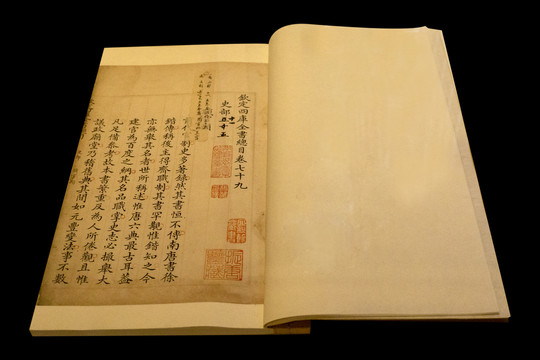 欽定四庫全書總目卷七十九
史部
代官制史多著錄然其書恒不傳南唐書徐
鍇傳稱後主得齊職制其書罕覯惟鍇知之今
亦無舉其名者世所稱述惟唐六典最古耳蓋
建官為百度之綱其名品職掌史志必撮舉大
凡足備參考故本書繁重反為人所倦觀且惟
議政廟堂乃稽舊典其間如元豐變法事不數